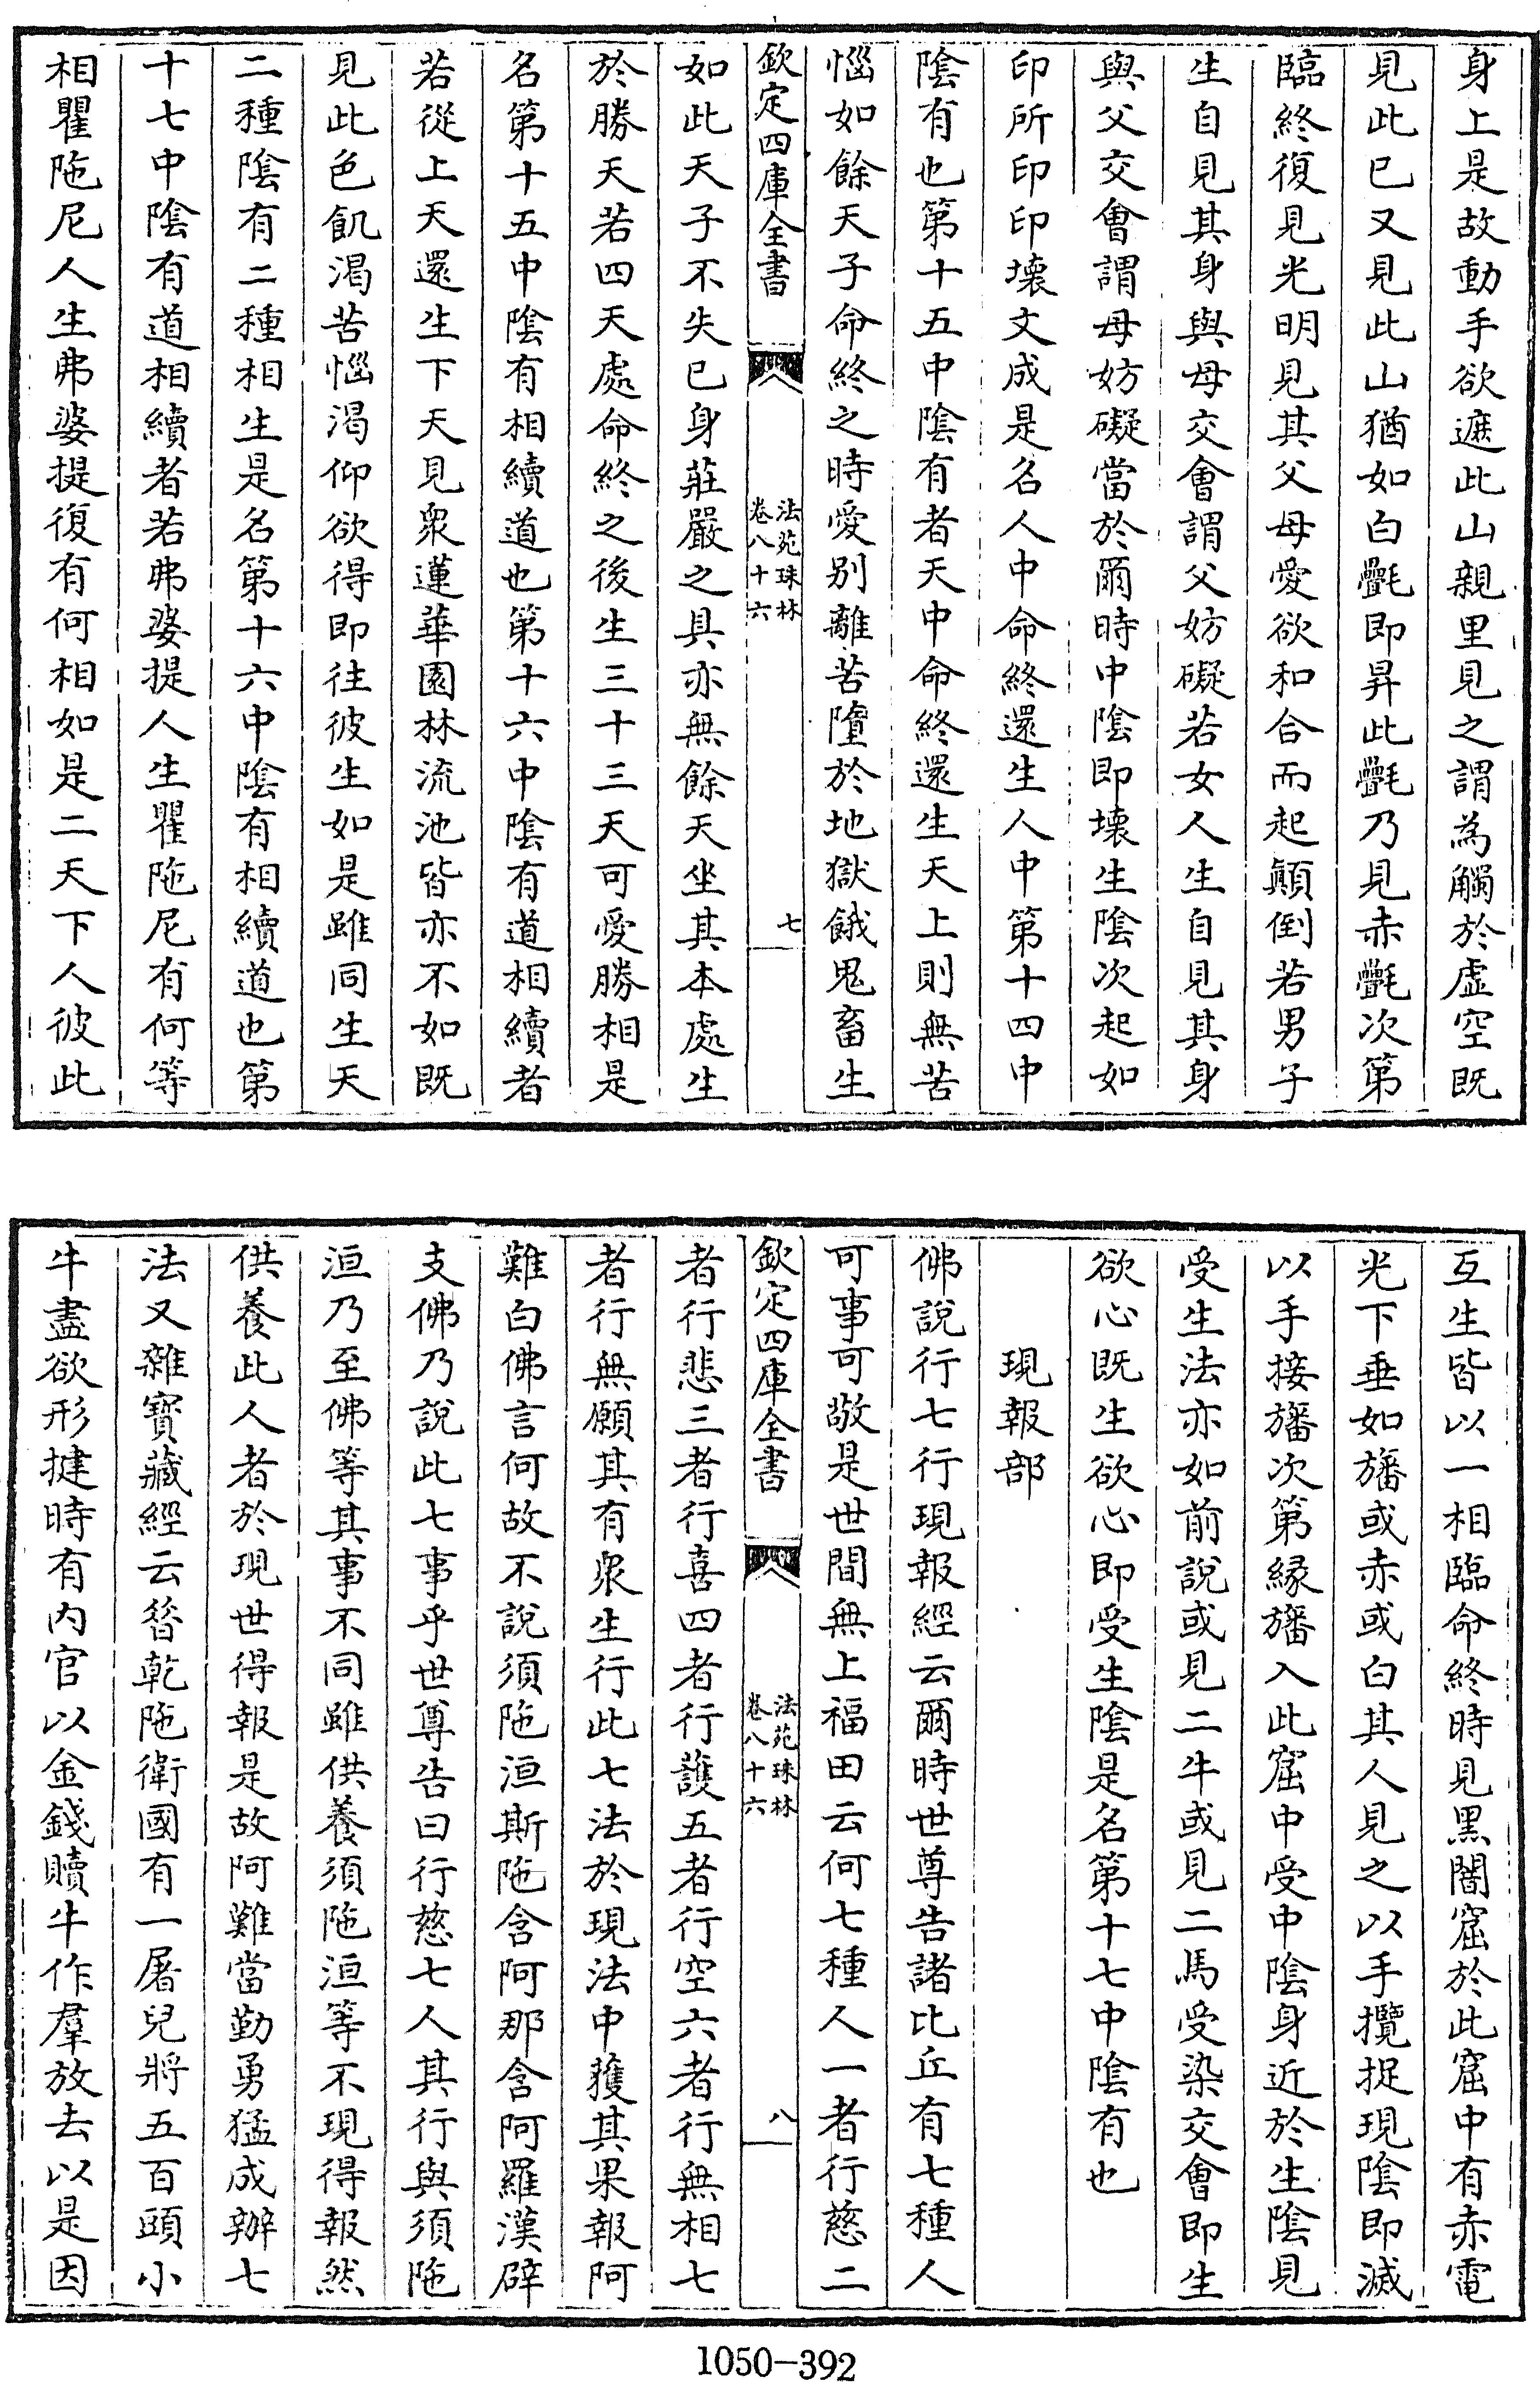 身上是故動手欲遮此山親里見之謂為觸於虛空既
見此已又見此山猶如白㲲即昇此㲲乃見赤㲲次第
臨終復見光明見其父母愛欲和合而起顛倒若男子
生自見其身與母交會謂父妨礙若女人生自見其身
與父交會謂母妨礙當於爾時中陰即壞生陰次起如
印所印印壞文成是名人中命終還生人中第十四中
陰有也第十五中陰有者天中命終還生天上則無苦
惱如餘天子命終之時愛別離苦墮於地獄餓鬼畜生
欽定四庫全書
法苑珠林
卷八十六
七
如此天子不失已身莊嚴之具亦無餘天坐其本處生
於勝天若四天處命終之後生三十三天可愛勝相是
名第十五中陰有相續道也第十六中陰有道相續者
若從上天還生下天見衆蓮華園林流池皆亦不如既
見此色飢渴苦惱渴仰欲得即往彼生如是雖同生天
二種陰有二種相生是名第十六中陰有相續道也第
十七中陰有道相續者若弗婆提人生瞿陁尼有何等
相瞿陁尼人生弗婆提復有何相如是二天下人彼此
互生皆以一相臨命終時見黑闇窟於此窟中有赤電
光下垂如旛或赤或白其人見之以手攬捉現陰即滅
以手接旛次第縁旛入此窟中受中陰身近於生陰見
受生法亦如前說或見二牛或見二馬受染交會即生
欲心既生欲心即受生陰是名第十七中陰有也
現報部
佛說行七行現報經云爾時世尊告諸比丘有七種人
可事可敬是世間無上福田云何七種人一者行慈二
欽定四庫全書
法苑珠林
卷八十六
八
者行悲三者行喜四者行護五者行空六者行無相七
者行無願其有衆生行此七法於現法中獲其果報阿
難白佛言何故不說須陁洹斯陁含阿那含阿羅漢辟
支佛乃說此七事乎世尊告曰行慈七人其行與須陁
洹乃至佛等其事不同雖供養須陁洹等不現得報然
供養此人者於現世得報是故阿難當勤勇猛成辦七
法又雜寶藏經云昝乾陁衛國有一屠兒將五百頭小
牛盡欲形揵時有内官以金錢贖牛作羣放去以是因
1050-392